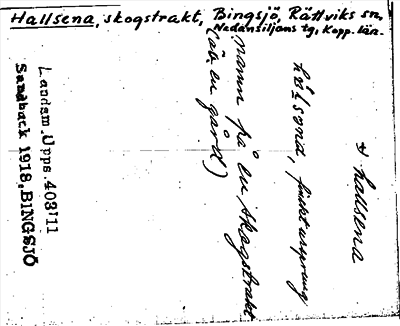 Hallsena, skogstrakt, Bingsjö, Rättviks sn,
Nedansiljans tg, Kopp. län.
+ hallsena
hálsena, finskt ursprung
namn på en skogstrakt
(äv. en gård)
Landsm. Upps. 403:11
Sandback 1918. BINGSJÖ